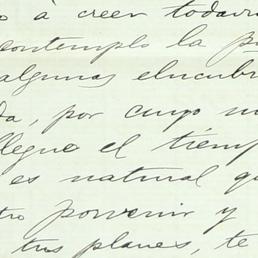 o á creer todavía
contemplo la pu
algunas elucubr
da, por cuyo m
llegue el tiemp
es natural qu
tro porvenir y
tus planes, te